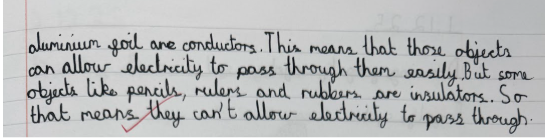 aluminium foil are conductors. This means that those objects
can allow electricity to pass through them easily. But some
objects like pencils, rulers and rubbers are insulators. So
that means they can't allow electricity to pass through.